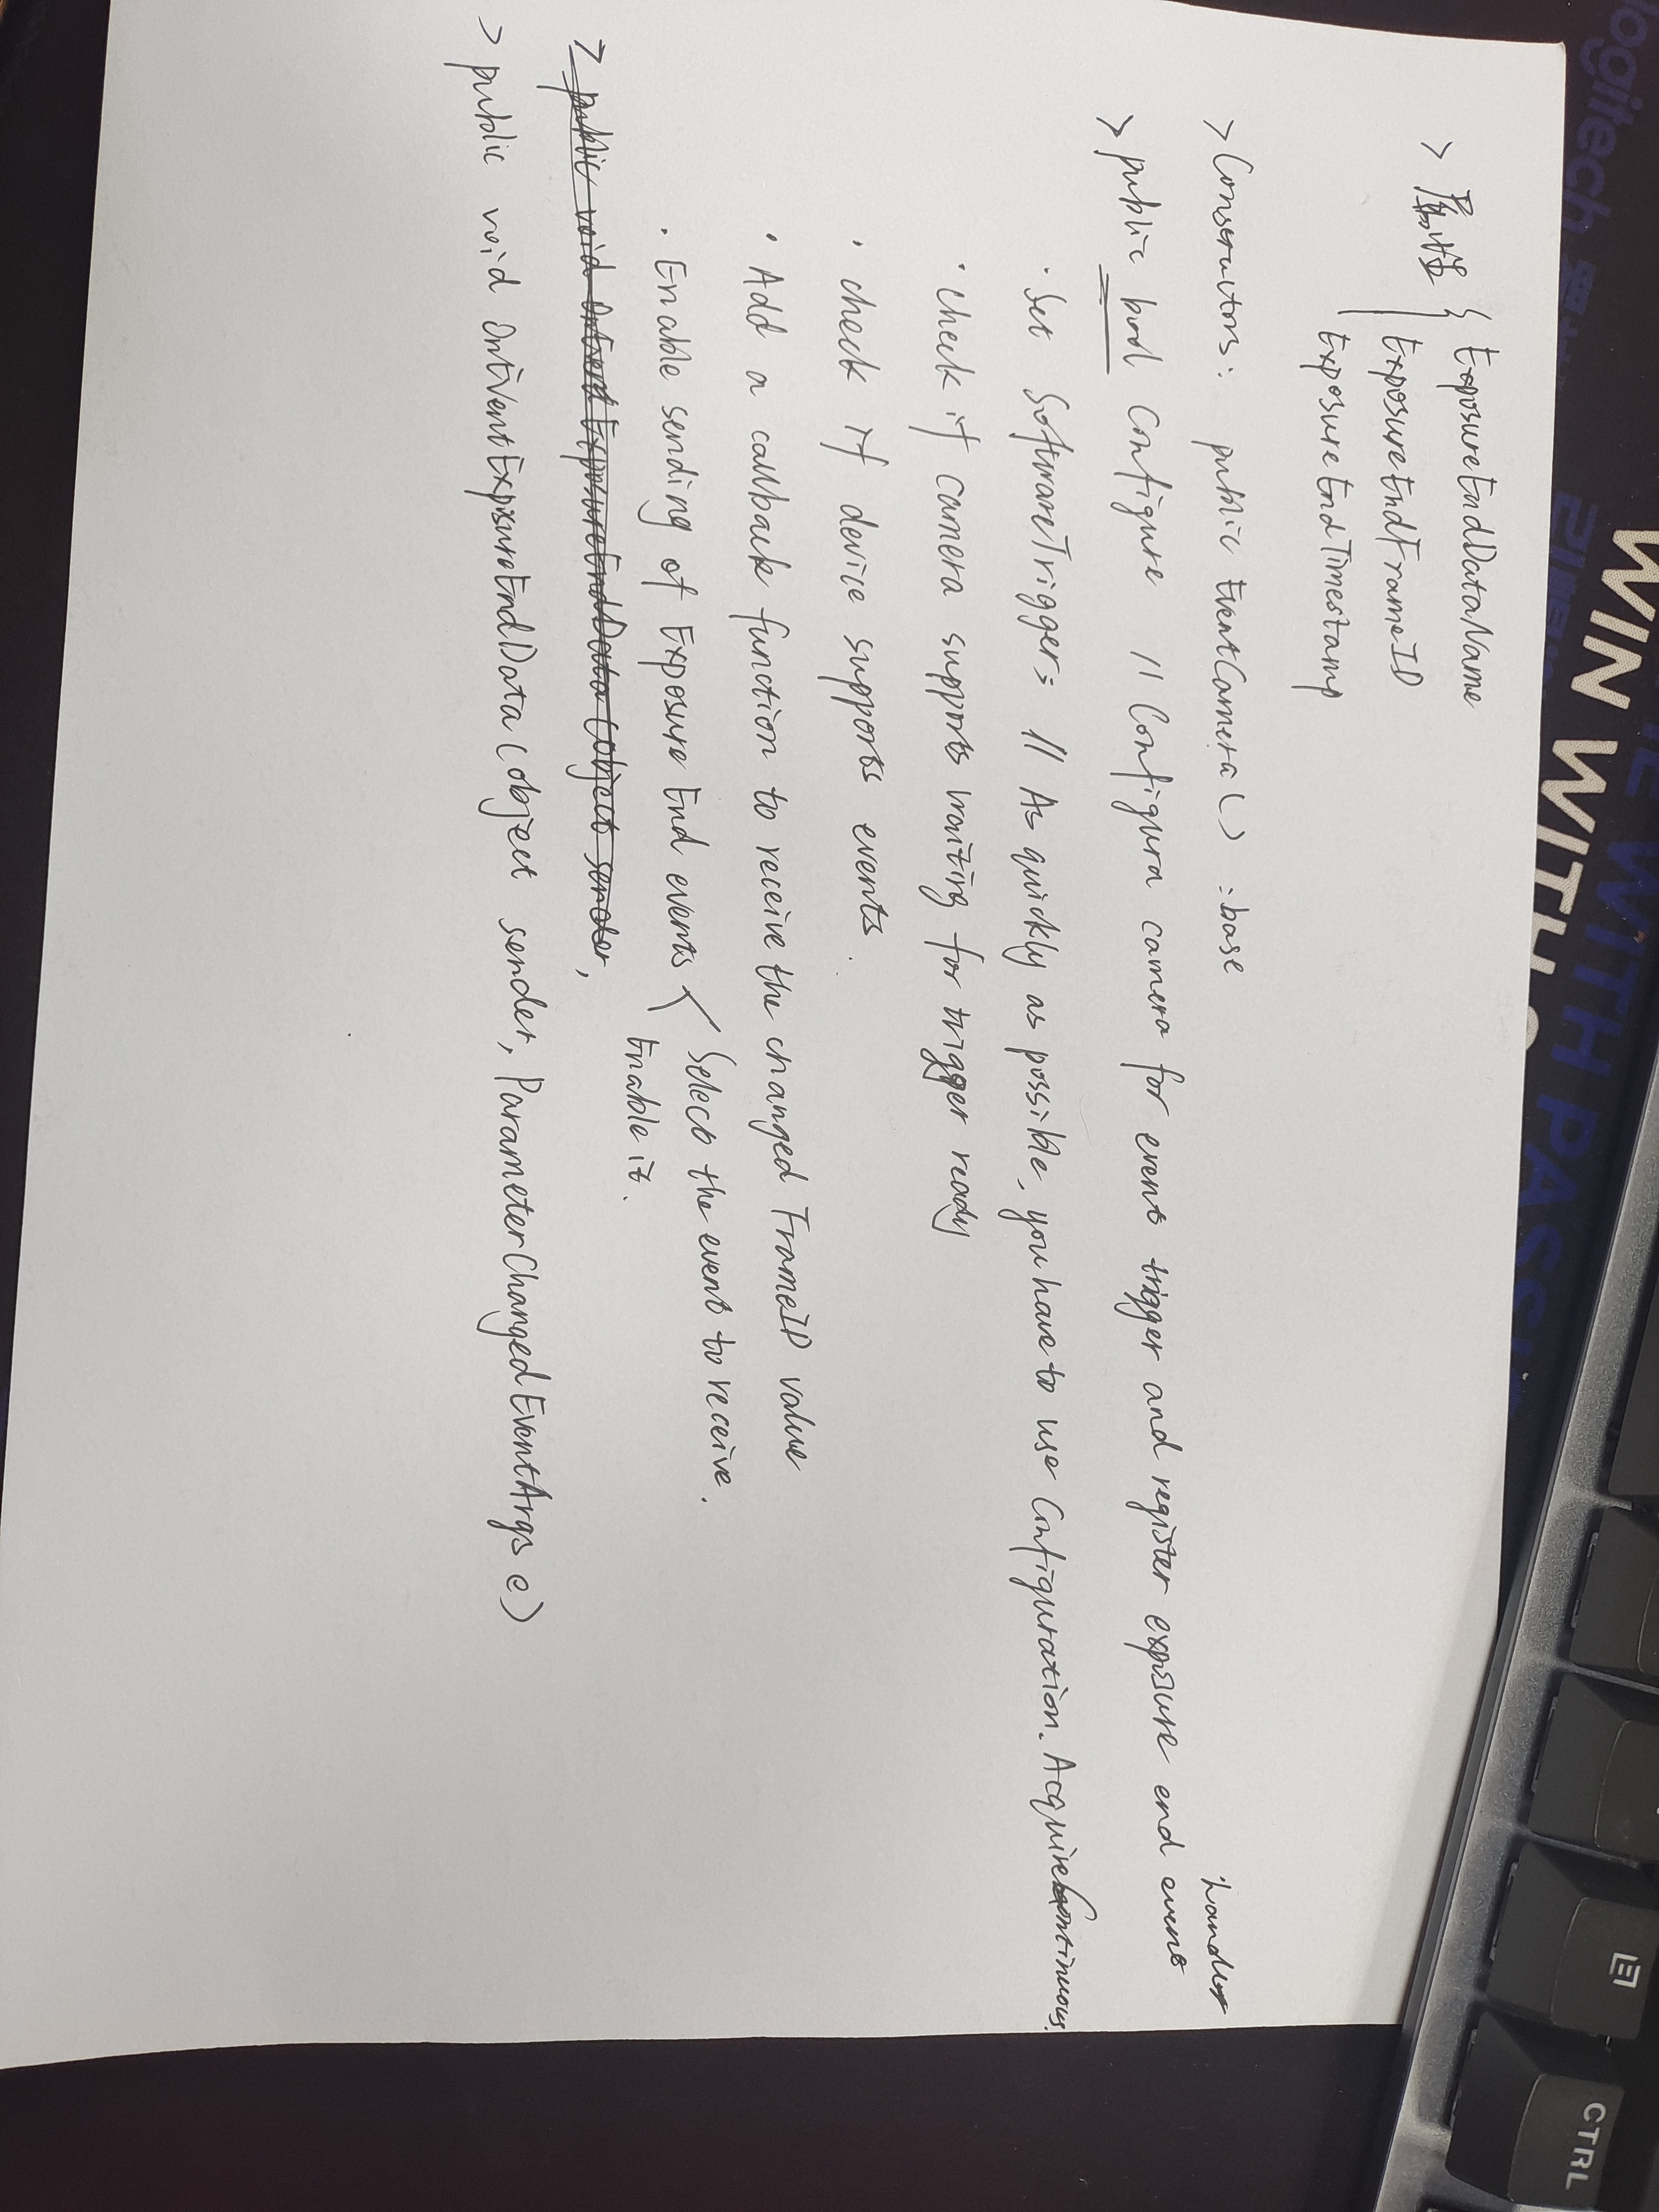 > 属性 { ExposureEndDataName
ExposureEndFrameID
ExposureEndTimestamp
> Constructors: public EventCamera() :base
> public bool Configure // Configura camera for event trigger and register exposure end event handler
· Set SoftwareTrigger: // As quickly as possible, you have to use Configuration.AcquireContinuous.
· check if camera supports waiting for trigger ready
· check if device supports events.
· Add a callback function to receive the changed FrameID value
· Enable sending of Exposure End events < Select the event to receive.
Enable it.
> public void OnEventExposureEndData (object sender,
> public void OnEventExposureEndData (object sender, ParameterChangedEventArgs e)
logitech
WIN WITH
WITH PASS
CTRL